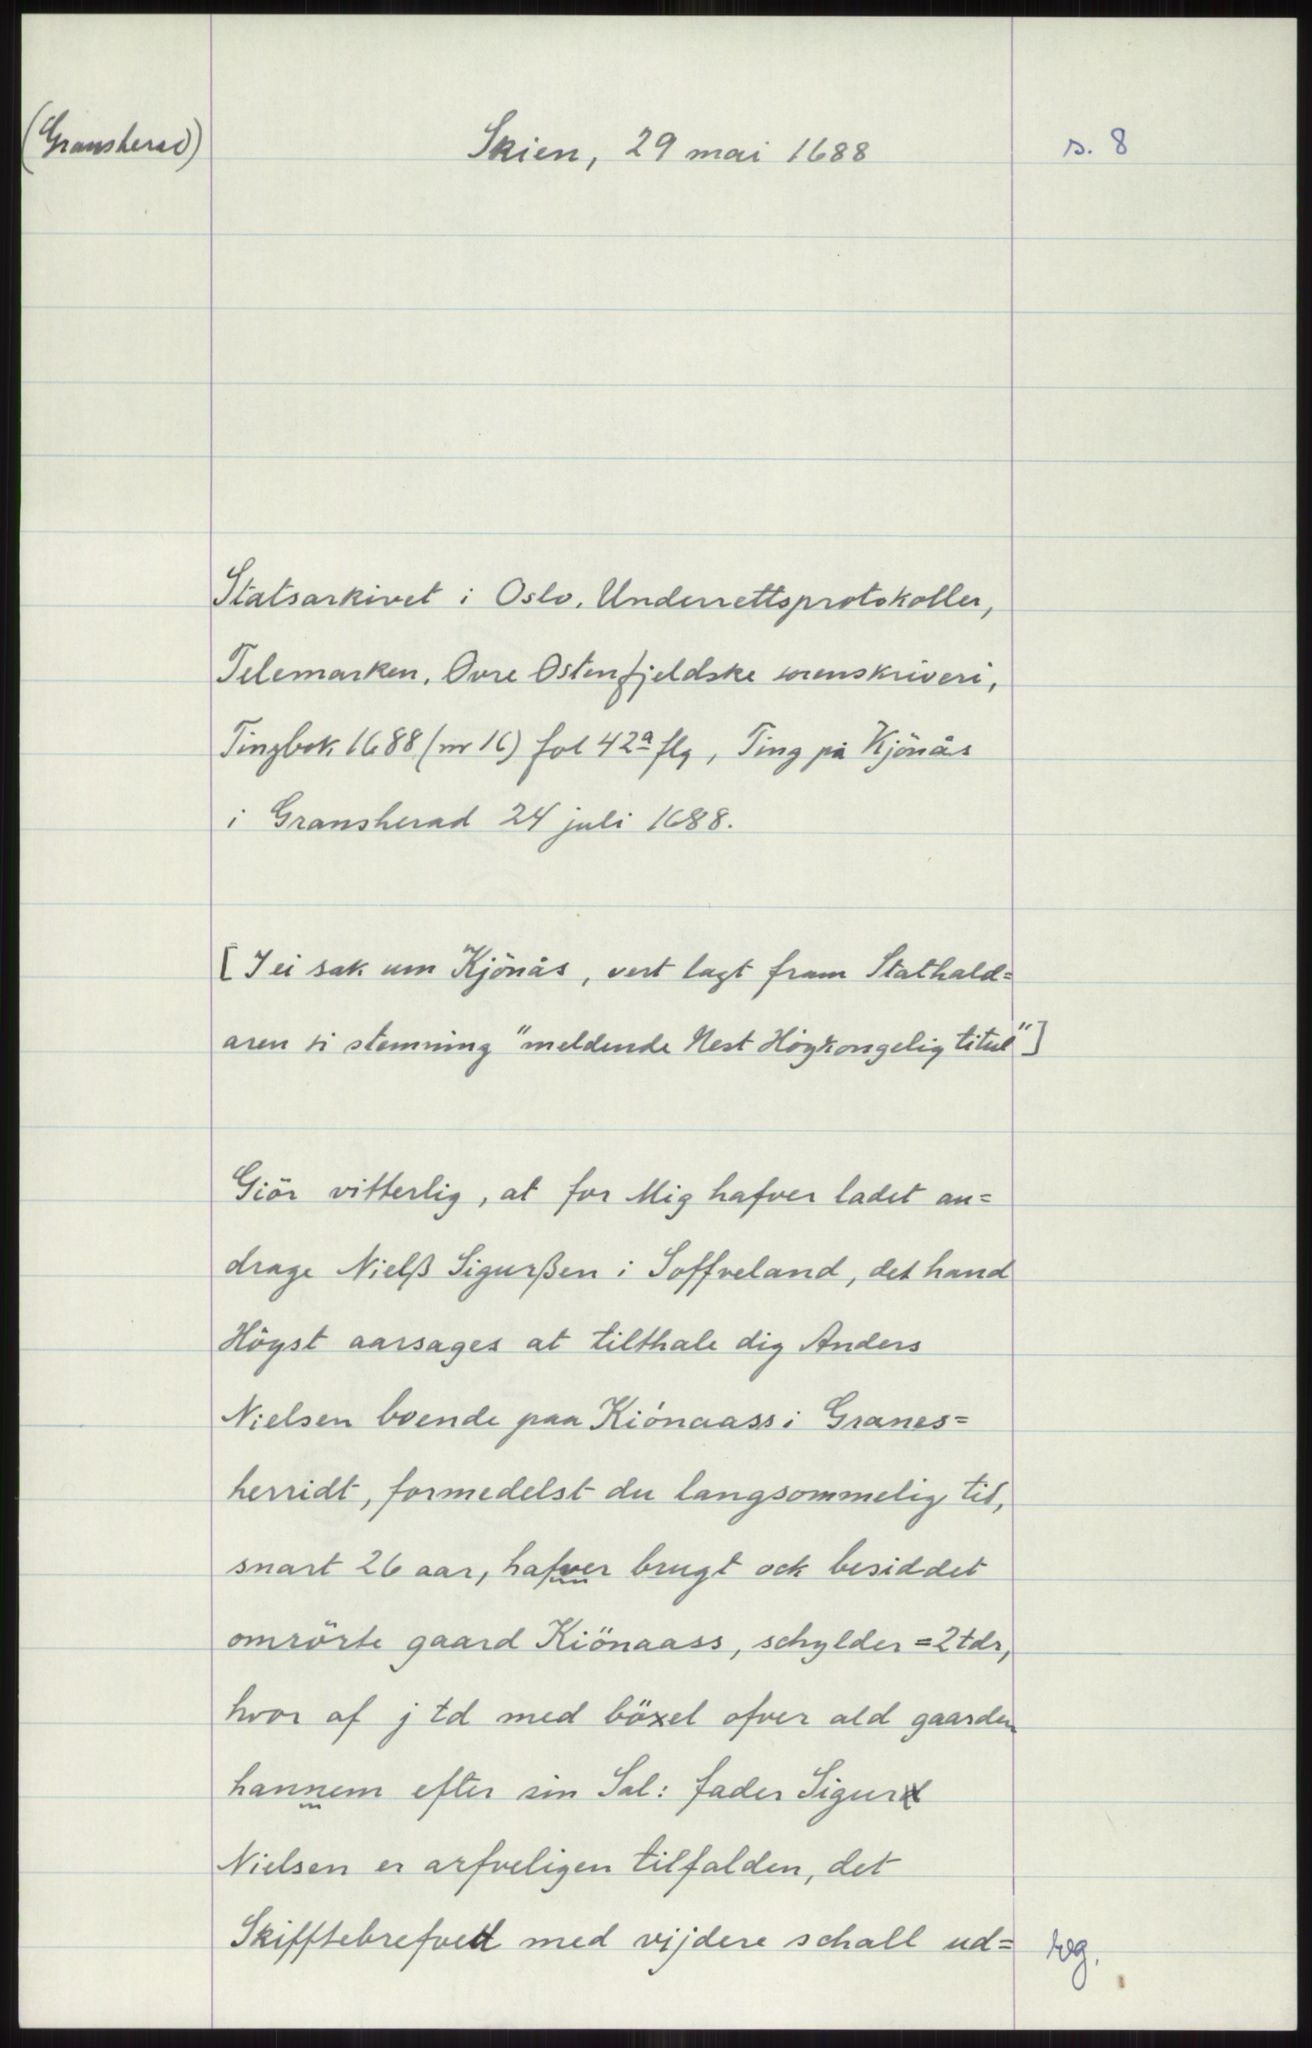 (Gransherad)
Skien, 29 mai 1688
s. 8
Statsarkivet i Oslo. Underrettsprotokoller,
Telemarken, Övre Østenfjeldske sorenskriveri,
Tingbok 1688 (nr 16) fol 42a flg, Ting på Kjönås
i Gransherad 24 juli 1688.
[I ei sak um Kjönås, vert lagt fram Stathald=
aren si stemning "meldende Nest Högkongelig titul"]
Giör vitterlig, at for Mig hafver ladet an=
drage Nielß Sigurßen i Soffveland, det hand
Högst aarsages at tilthale dig Anders
Nielsen boende paa Kiönaass i Granes=
herridt, formedelst du langsommelig tid,
snart 26 aar, hafver brugt ock besiddet
omrörte gaard Kiönaass, schylder =2 tdr,
hvor af j td med böxel ofver ald gaarden
hannem efter sin Sal: fader Sigurd
Nielsen er arfveligen tilfalden, det
Skifftebrefvet med vijdere schall ud=
reg.